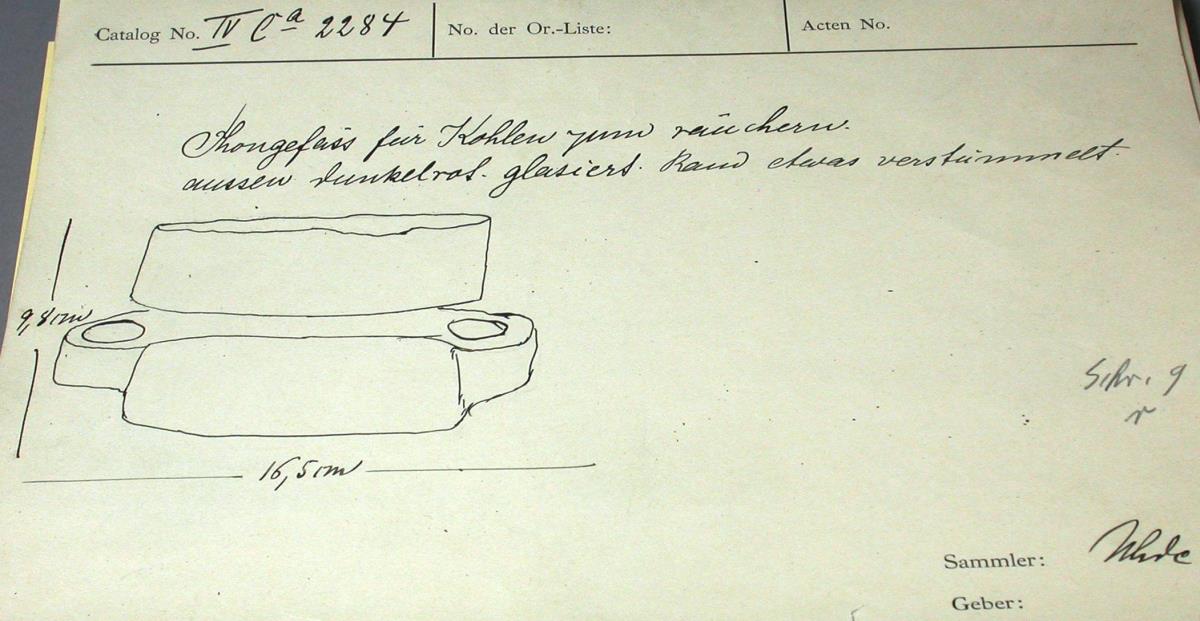 Catalog No. IV Ca 2284 No. der Or.-Liste: Acten No.
Thongefäss für Kohlen zum räuchern.
aussen dunkelrot. glasiert. Rand etwas verstümmelt.
9,8 cm
16,5 cm
Schr. 9
r
Sammler: Uhde
Geber: